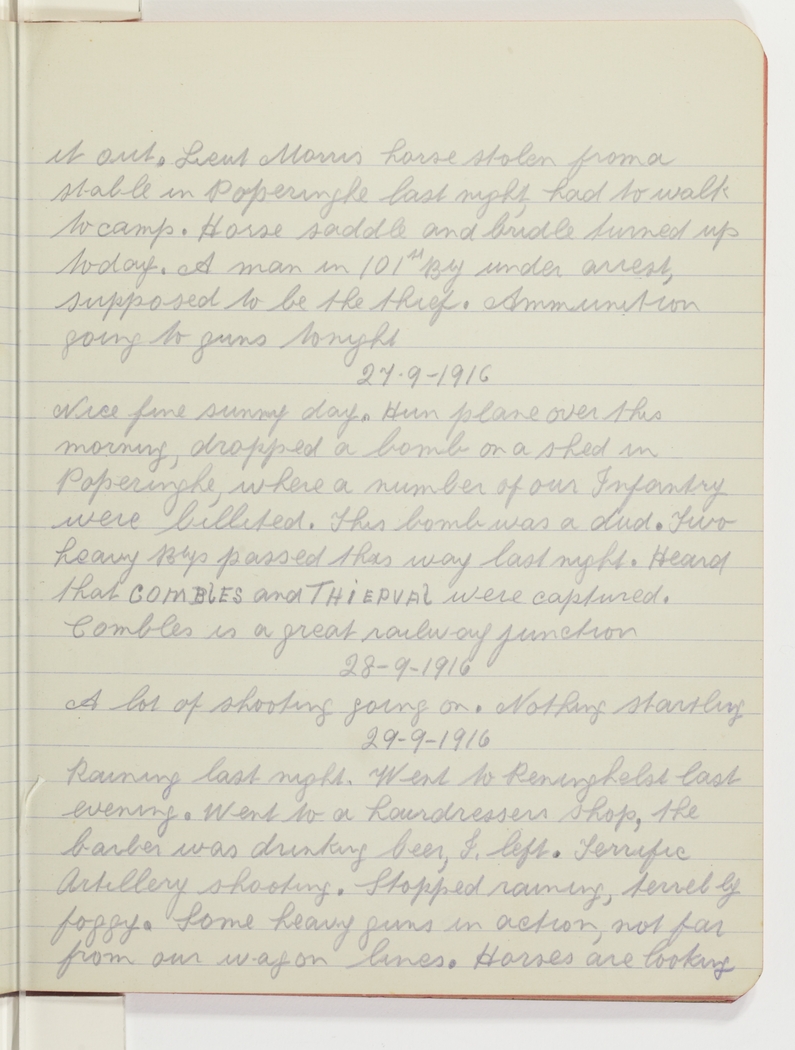 it out. Lieut Morris horse stolen from a
stable in Poperinghe last night, had to walk
to camp. Horse saddle and bridle turned up
today. A man in 101st By under arrest,
supposed to be the thief. Ammunition
going to guns tonight
27-9-1916
Nice fine sunny day. Hun plane over this
morning, dropped a bomb on a shed in
Poperinghe, where a number of our Infantry
were billited. This bomb was a dud. Two
heavy Btys passed this way last night. Heard
that COMBLES and THIEPVAL were captured.
Combles is a great railway junction
28-9-1916
A lot of shooting going on. Nothing startling
29-9-1916
Raining last night. Went to Reninghelst last
evening. Went to a hairdressers shop, the
barber was drinking beer, I. left. Terrific
Artillery shooting. Stopped raining, terrebly
foggy. Some heavy guns in action, not far
from our wagon lines. Horses are looking